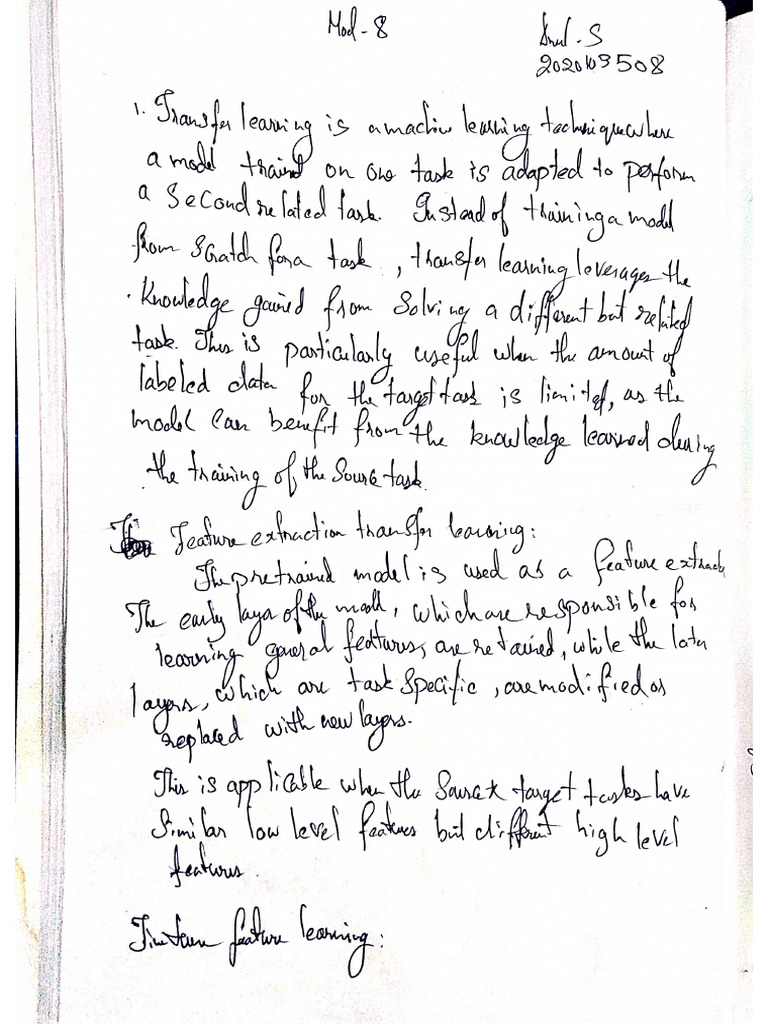 Mod - 8
S
2020103508
1. Transfer learning is a machine learning technique where
a model trained on one task is adapted to perform
a second related task. Instead of training a model
from scratch for a task, transfer learning leverages the
knowledge gained from solving a different but related
task. This is particularly useful when the amount of
labeled data for the target task is limited, as the
model can benefit from the knowledge learned during
the training of the source task.
Feature extraction transfer learning:
The pretrained model is used as a feature extractor
The early layer of the model, which are responsible for
learning general features, are retained, while the later
layers, which are task specific, are modified or
replaced with new layers.
This is applicable when the source & target tasks have
similar low level features but different high level
features.
feature learning: